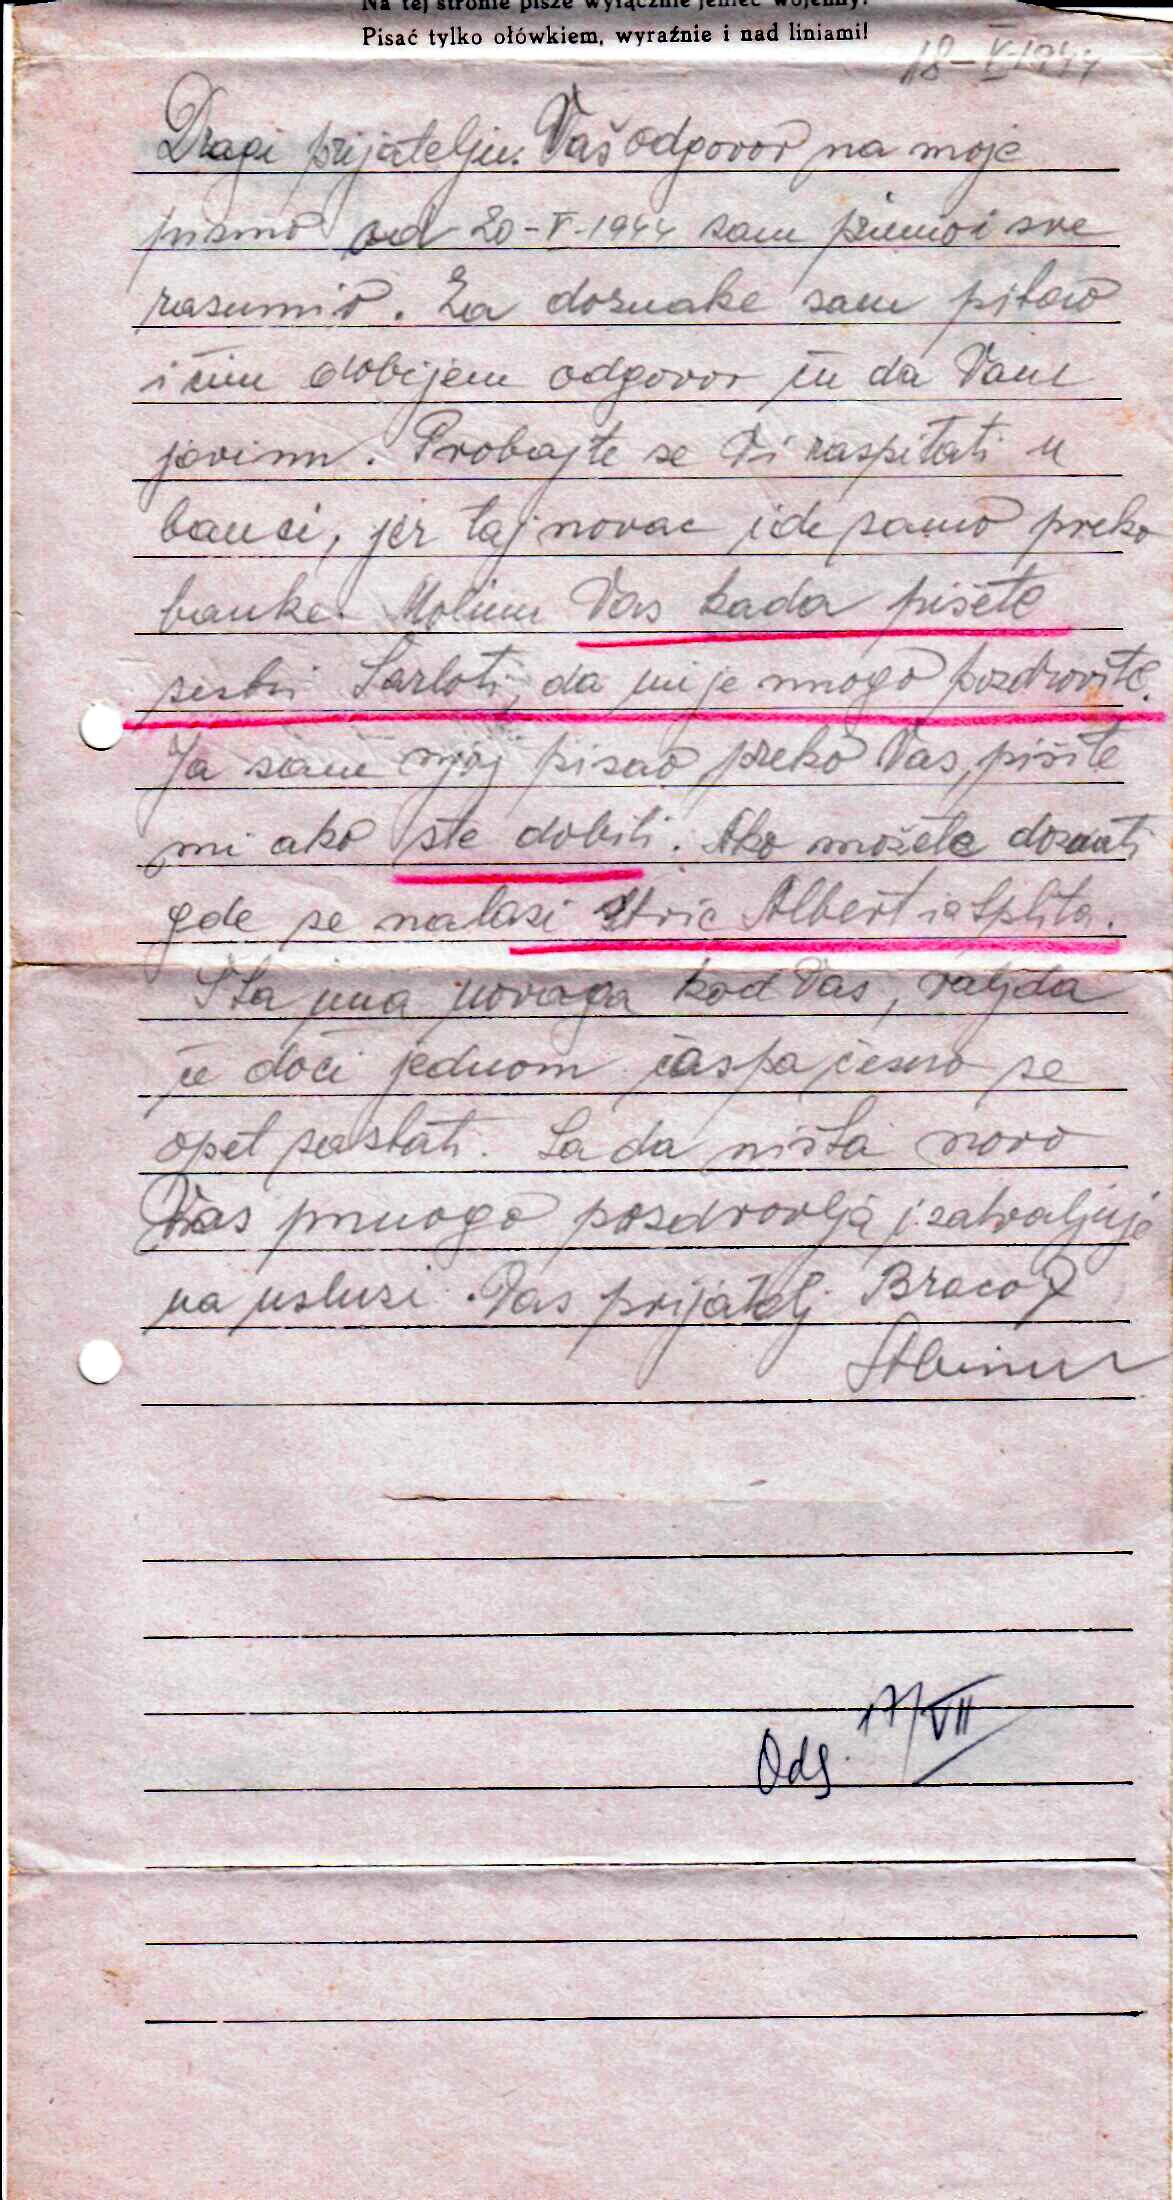 Na tej stronie pisze wyłącznie jeniec wojenny!
Pisać tylko ołówkiem, wyraźnie i nad liniami!
18-V-1944
Dragi prijatelju. Vaš odgovor na moje
pismo od 20-V-1944 sam primio i sve
rasumio. Za dosnake sam pitao
i čim dobijem odgovor ću da Vam
javim. Probajte se Vi raspitati u
banci, jer taj novac ide samo preko
banke. Molim Vas kada pišete
sestri Šarloti, da mi je mnogo pozdravite.
Ja sam njoj pisao preko Vas, pišite
mi ako ste dobili. Ako možete doznati
gde se nalasi stric Albert iz Splita.
Šta ima novoga kod Vas, valjda
će doći jednom čas pa ćemo se
opet sastati. Sada ništa novo
Vas mnogo posdravlja i zahvaljuje
na uslusi. Vas prijatelj Braco
Odg. 17/VII